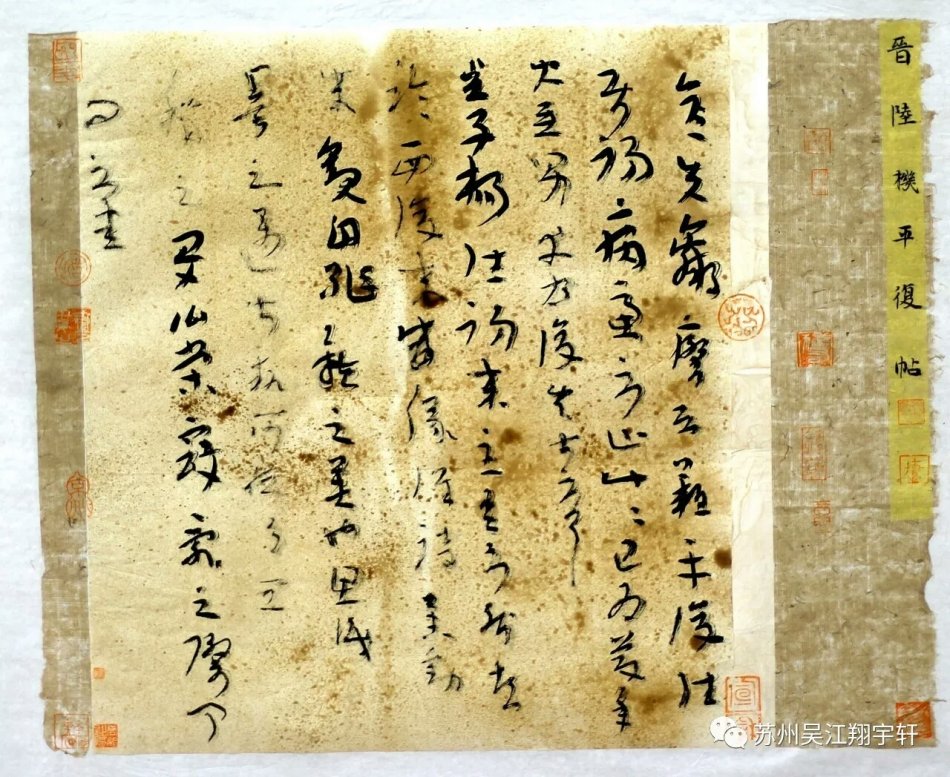 晉陸機平復帖
彥先羸瘵恐難平復往
屬初病慮不止此此已為慶承
使唯男幸為復失前憂耳
吳子楊往初來主吾不能盡
臨西復來威儀詳跱舉動
成觀自軀體之美也思識
量之邁前執所恒有宜
稱之夏伯榮寇亂之際聞
問不悉
苏州吴江翔宇轩